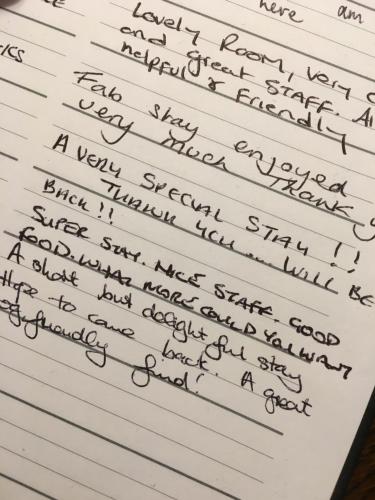 here am
Lovely Room, very c
and great STAFF. Al
helpful & Friendly
ICS
Fab stay enjoyed
very much Thank y
A VERY SPECIAL STAY !!
THANK YOU .... WILL BE
BACK!!
SUPER STAY. NICE STAFF. GOOD
FOOD. WHAT MORE COULD YOU WANT
A short but delightful stay
Hope to come back. A great
dog friendly find!